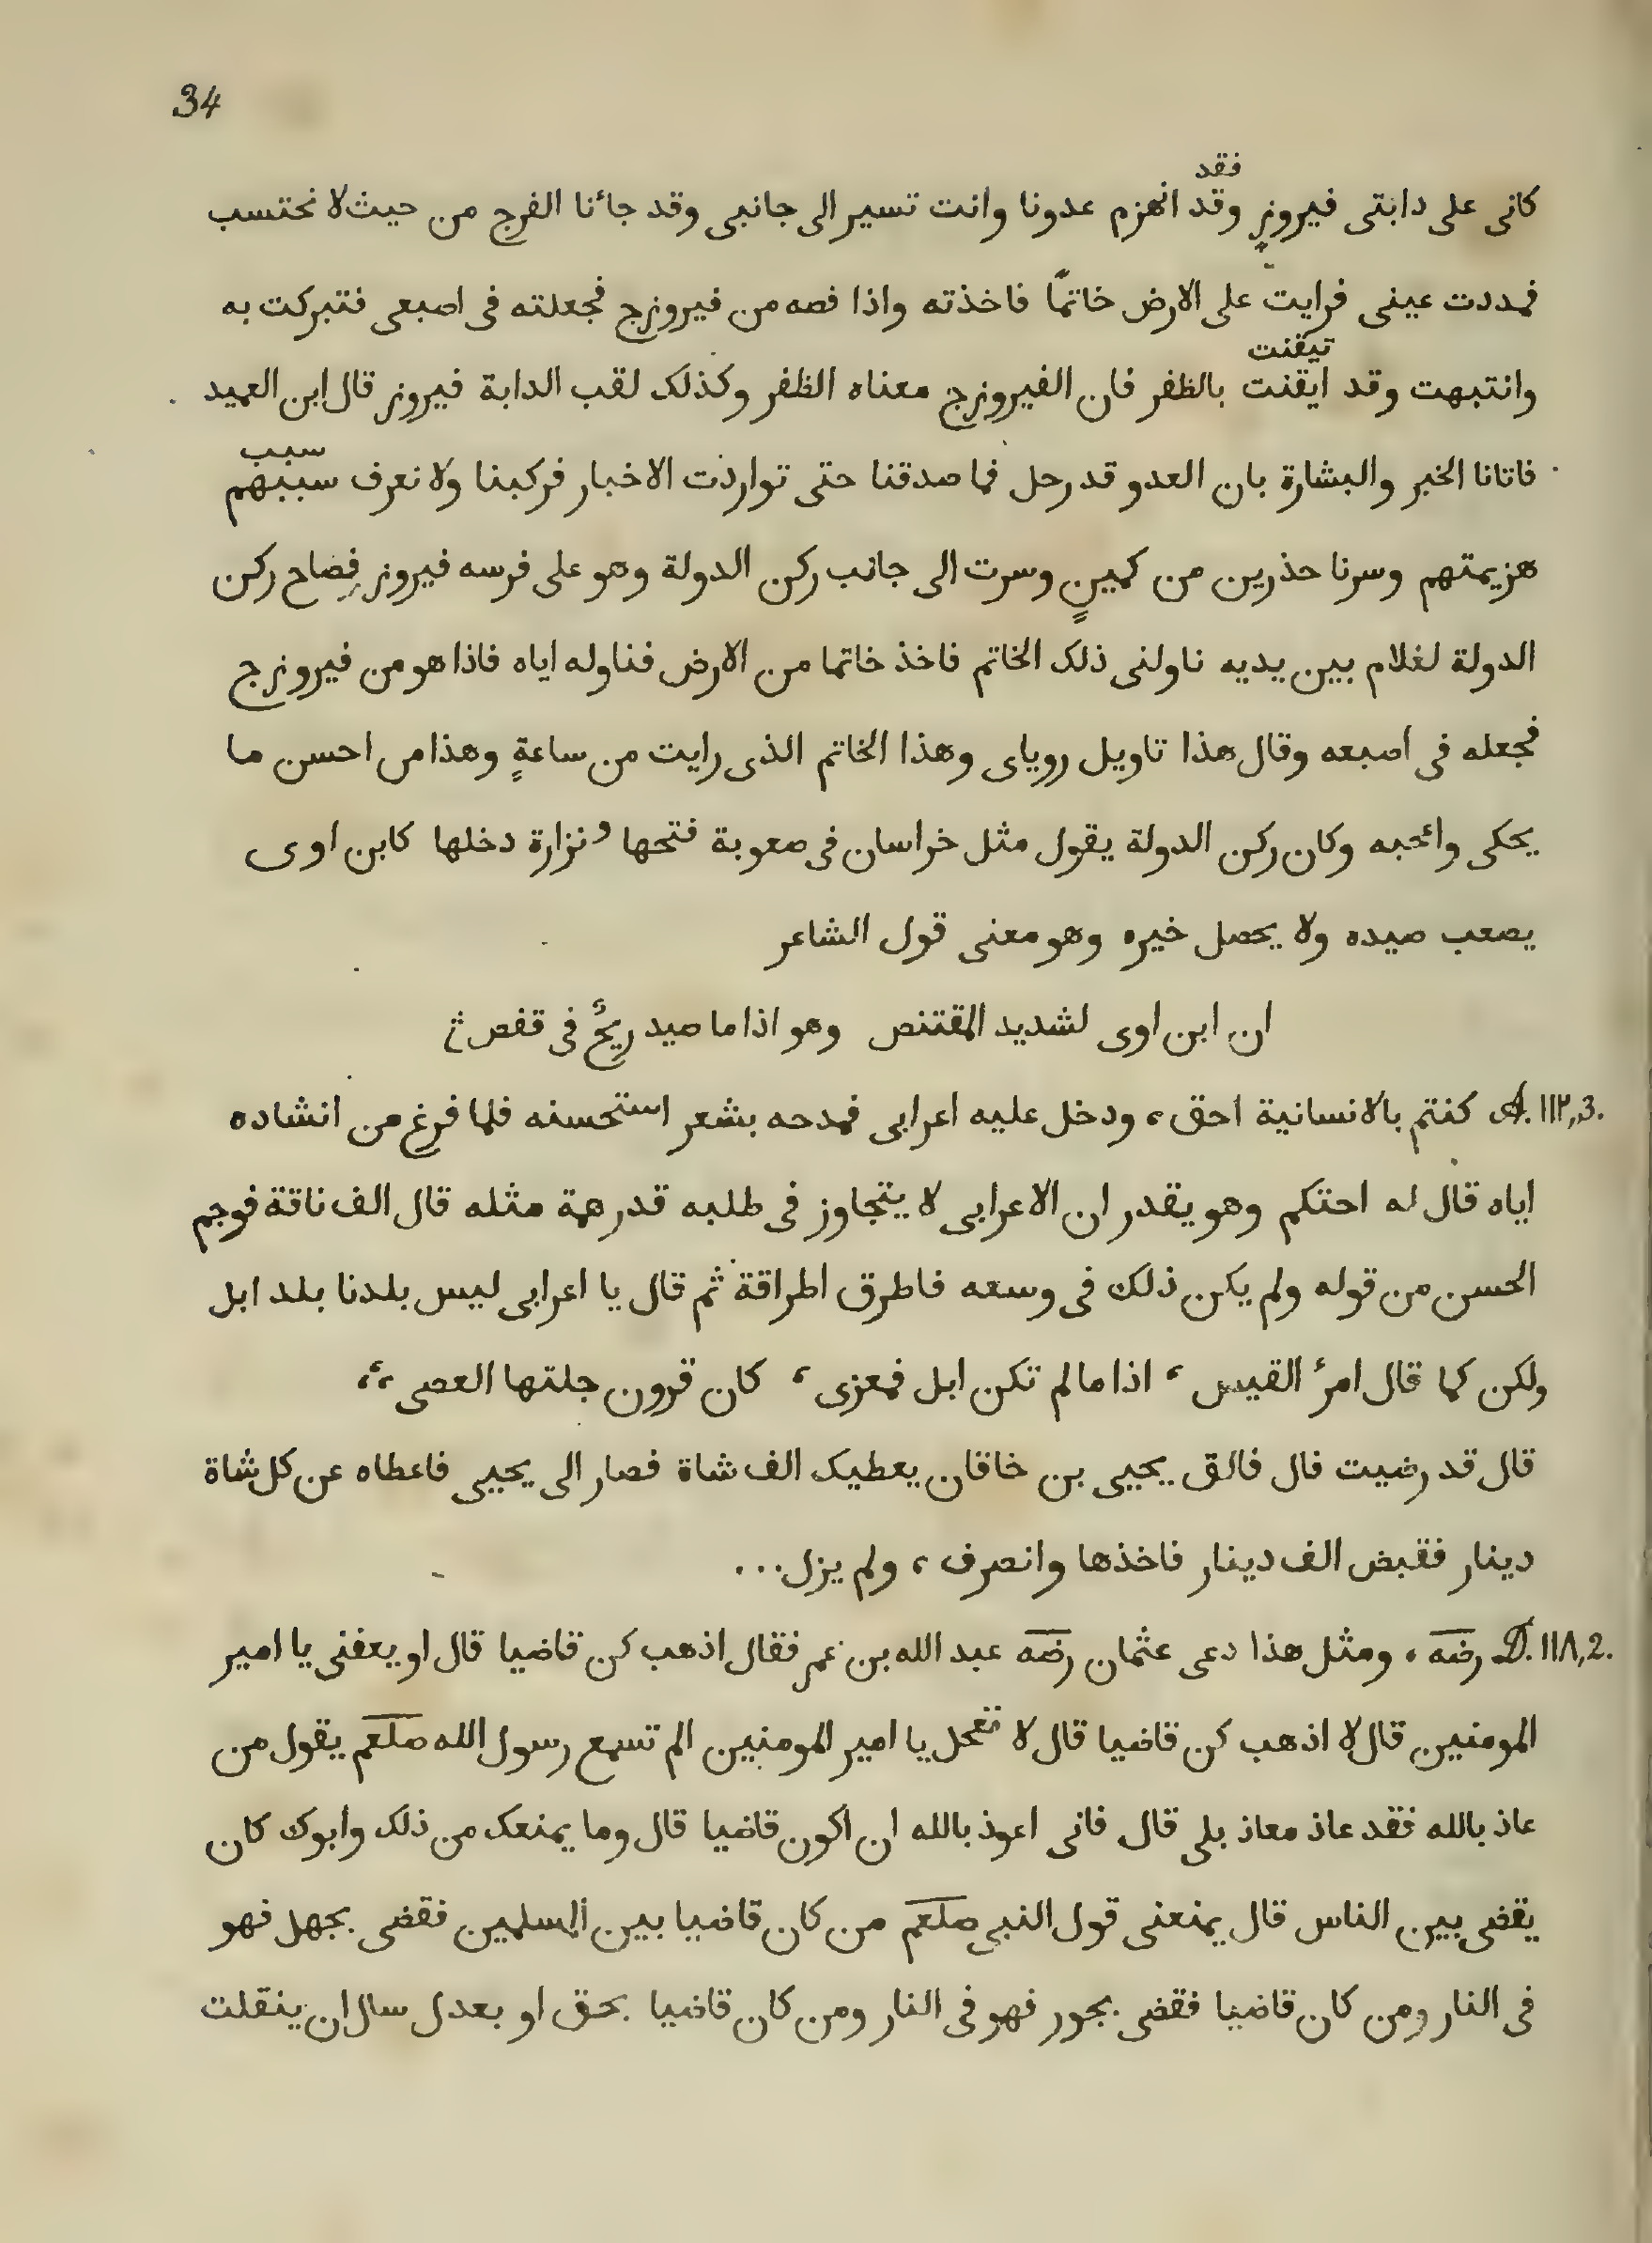 34
فقد
كانى على دابتى فيروز وقد انهزم عدونا وانت تسير الى جانبى وقد جاءنا الفرج من حيث لا نحتسب
فمددت عينى فرايت على الارض خاتمًا فاخذته واذا فصه من فيروزج فجعلته فى اصبعى فتبركت به
تيقنت
وانتبهت وقد ايقنت بالظفر فان الفيروزج معناه الظفر وكذلك لقب الدابة فيروز قال ابن العميد
سبب
فاتانا الخبر والبشارة بان العدو قد رحل فما صدقنا حتى تواردت الاخبار فركبنا ولا نعرف سببهم
هزيمتهم وسرنا حذرين من كمينٍ وسرت الى جانب ركن الدولة وهو على فرسه فيروز فصاح ركن
الدولة لغلام بين يديه ناولنى ذلك الخاتم فاخذ خاتما من الارض فناوله اياه فاذا هو من فيروزج
فجعله فى أصبعه وقال هذا تاويل روياى وهذا الخاتم الذى رايت من ساعةٍ وهذا من احسن ما
يحكى واعجبه وكان ركن الدولة يقول مثل خراسان فى صعوبة فتحها ونزارة دخلها كابن اوى
يصعب صيده ولا يحصل خيره وهو معنى قول الشاعر
ان ابن اوى لشديد المقتنص وهو اذا ما صيد ريحٌ فى قفص
A. ١١٣,3. كنتم بالانسانية احق، ودخل عليه اعرابى فمدحه بشعر استحسنه فلما فرغ من انشاده
اياه قال له احتكم وهو يقدر ان الاعرابى لا يتجاوز فى طلبه قدر همة مثله قال الف ناقة فوجم
الحسن من قوله ولم يكن ذلك فى وسعه فاطرق اطراقة ثم قال يا اعرابى ليس بلدنا بلد ابل
ولكن كما قال امرئ القيس ، اذا ما لم تكن ابل فمعزى ، كان قرون جلتها العصى ،،
قال قد رضيت قال فالق يحيى بن خاقان يعطيك الف شاة فصار الى يحيى فاعطاه عن كل شاة
دينار فقبض الف دينار فاخذها وانصرف ، ولم يزل...
D. ١١٨,2. رضه ، ومثل هذا دعى عثمان رضه عبد الله بن عمر فقال اذهب كن قاضيا قال او يعفنى يا امير
المومنين قال لا اذهب كن قاضيا قال لا تعجل يا امير المومنين الم تسمع رسول الله صلعم يقول من
عاذ بالله فقد عاذ معاذ بلى قال فانى اعوذ بالله ان اكون قاضيا قال وما يمنعك من ذلك وأبوك كان
يقضى بين الناس قال يمنعنى قول النبى صلعم من كان قاضيا بين المسلمين فقضى بجهل فهو
فى النار ومن كان قاضيا فقضى بجور فهو فى النار ومن كان قاضيا بحق او بعدل سال ان ينقلت